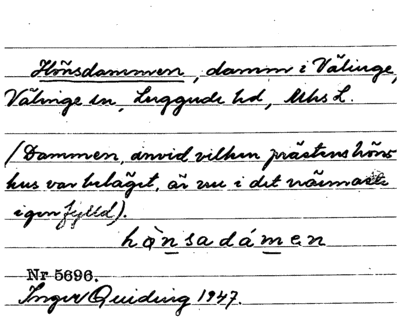 Hönsdammen, damm i Välinge,
Välinge sn, Luggude hd, Mhs L.
(Dammen, invid vilken prästens höns-
hus var beläget, är nu i det närmaste
igenfylld).
hǫ̀nsadámen
Nr 5696.
Inger Quiding 1947.